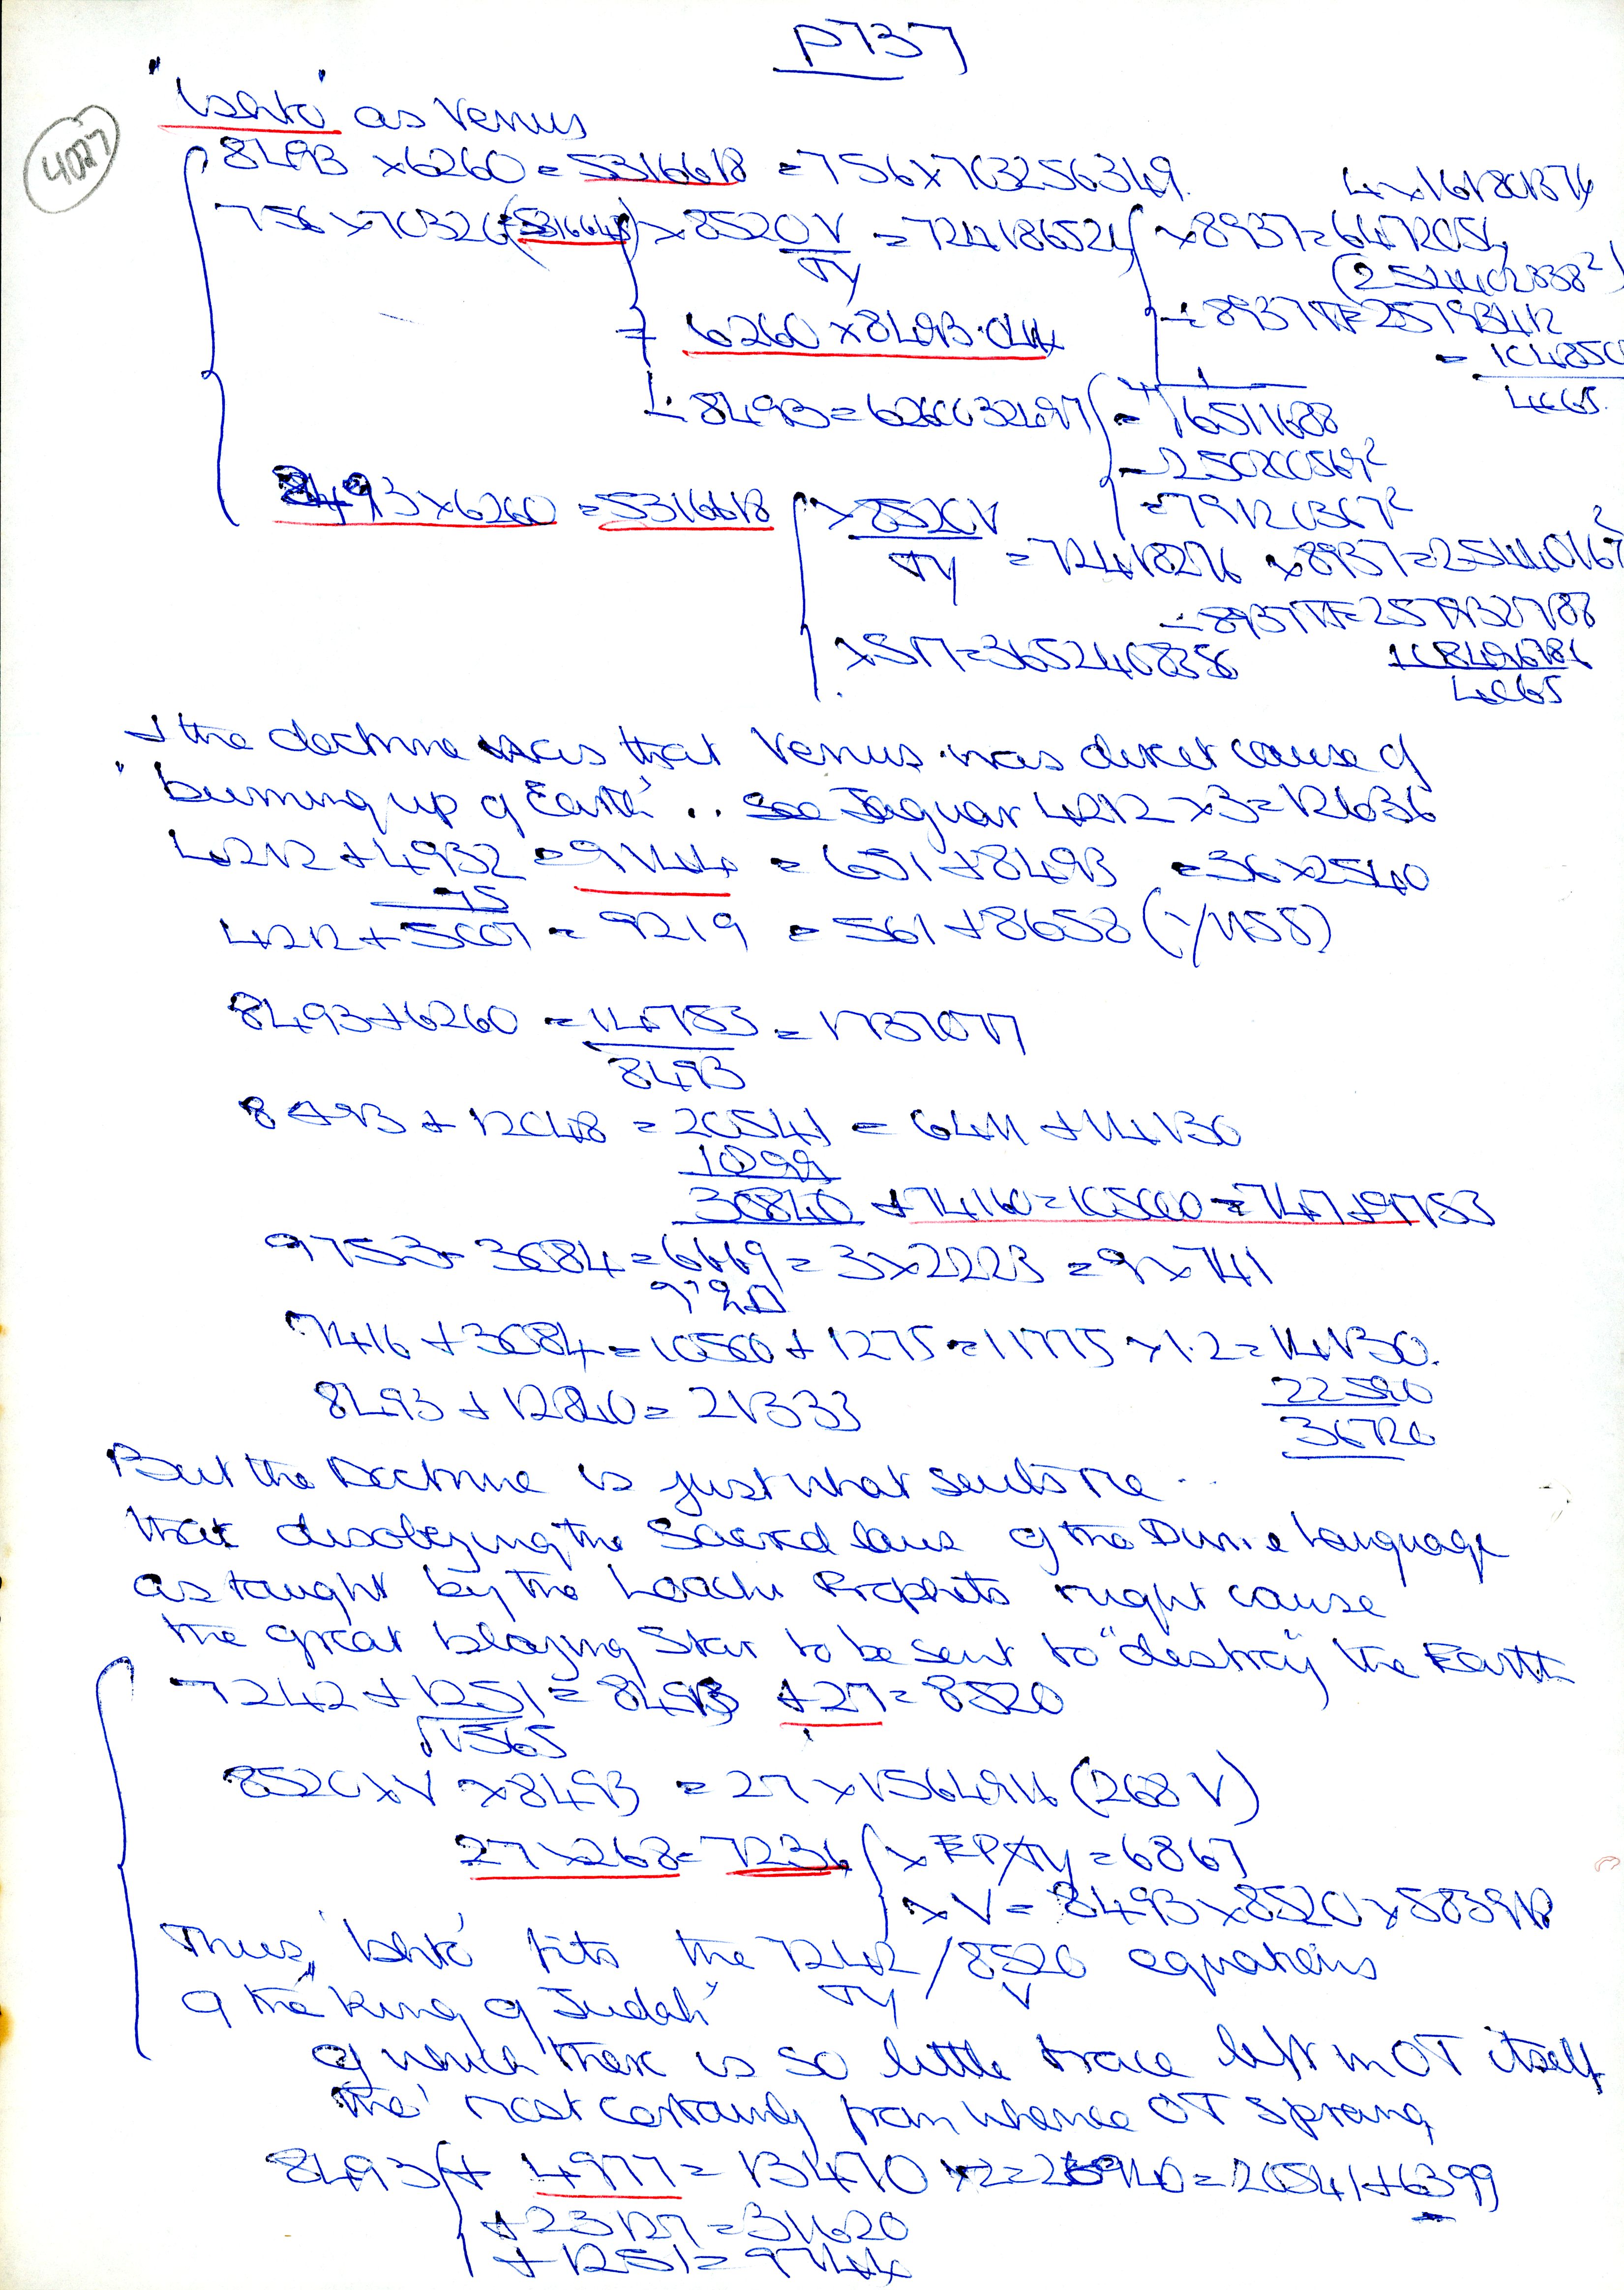 p737
4027
"Ishto" as Venus
8493 × 6260 = 5316618 = 756 × 703256349.
4 × 161801374
756 × 70326 (5316645) × 8520 V = 724186524 × 8937 = 6472054
TY
(254402838²)
÷ 8937 = 257193412
6260 × 8493.044
4665.
÷ 8493 = 6260032497 = 76511688
= 250200569²
8493 × 6260 = 5316618 × 8520V
= 791201367²
TY = 724418276 × 8937 = 254440167²
÷ 8937 = 2579327188
4665
+ the doctrine was that Venus was direct cause of
'burning up of Earth' .. see Jaguar 4212 × 3 = 12636
4212 + 4932 = 9144 = 651 + 8493 = 36 × 2540
75
4212 + 5007 = 9219 = 561 + 8658 (1/1155)
8493 + 6260 = 14753 = 1737077
8493
8493 + 12048 = 20541 = 6411 + 14130
10299
30840 + 74160 = 105000 = 747 + 9753
9753 - 3084 = 6669 = 3 × 2223 = 9 × 741
7416 + 3084 = 10500 + 1275 = 11775 × 1.2 = 14130.
22590
36720
8493 + 12840 = 21333
But the Doctrine is just what suits me ..
that disobeying the Sacred laws of the Divine Language
as taught by the Prophets might cause
the great blazing Star to be sent to "destroy" the Earth
7242 + 1251 = 8493 + 27 = 8520
√1565
8520 × V × 8493 = 27 × 1564916 (268 V)
27 × 268 = 7236 × EP/TY = 6867
× V = 8493 × 8520 × 583918
Thus, 'Ishto' fits the 7242 / 8520 equations
TY V
of the "King of Judah"
of which there is so little trace left in OT itself
tho' most certainly from whence OT sprang
8493 + 4977 = 13470 × 2 = 26940 = 20541 + 6399
+ 23127 = 31620
+ 1251 = 9744